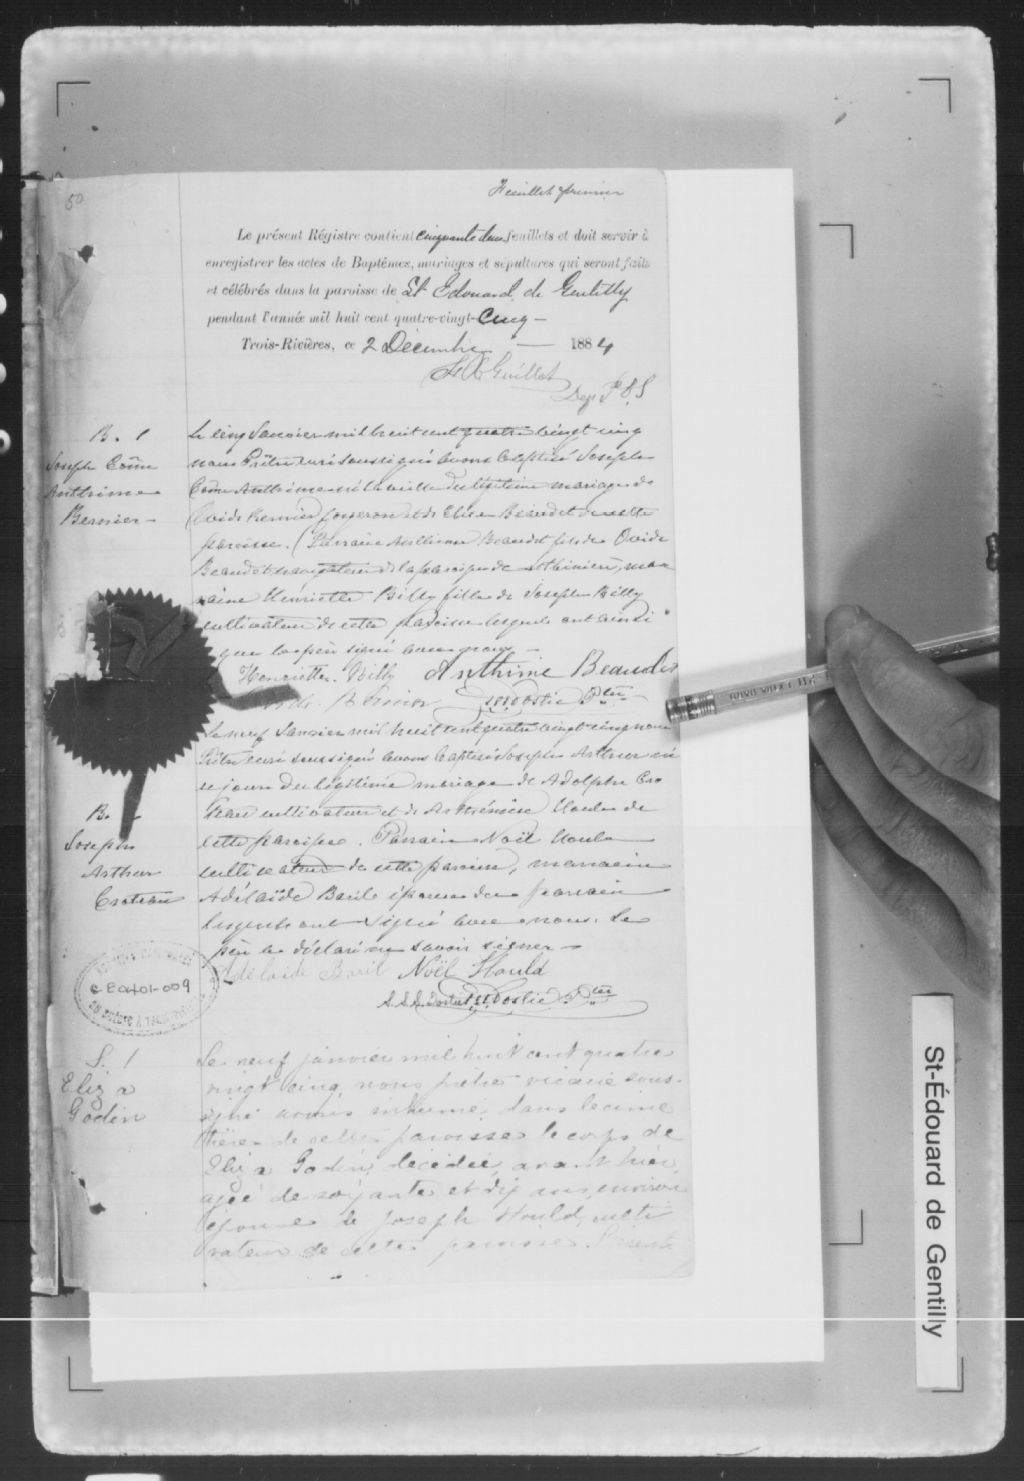 50
Feuillet premier
Le présent Régistre contient cinquante deux feuillets et doit servir à
enregistrer les actes de Baptêmes, mariages et sépultures qui seront faits
et célébrés dans la paroisse de St Edouard de Gentilly
pendant l'année mil huit cent quatre-vingt-Cinq —
Trois-Rivières, ce 2 Décembre — 1884
Guillet
Dep P.
B. 1
Joseph Côme
Anthime
Bernier -
Le cinq Janvier mil huit cent quatre vingt cinq
nous Prêtre curé soussigné avons baptisé Joseph
Côme Anthime né la veille du légitime mariage de
Ovide Bernier forgeron et de Elise Beaudet de cette
paroisse. Parrain Anthime Beaudet fils de Ovide
Beaudet navigateur de la paroisse de Lotbinière, mar
raine Henriette Billy fille de Joseph Billy
cultivateur de cette paroisse lesquels ont ainsi
que le père signé avec nous —
Henriette Billy Anthime Beaudet
Bernier Ptre
B.
Joseph
Arthur
Croteau
Le neuf Janvier mil huit cent quatre vingt cinq nous
Prêtre curé soussigné avons baptisé Joseph Arthur né
ce jour du légitime mariage de Adolphe Cro
teau cultivateur et de Houle de
cette paroisse. Parrain Noël Houle
cultivateur de cette paroisse, marraine
Adélaïde Baril épouse du parrain
lesquels ont signé avec nous. Le
père a déclaré ne savoir signer —
Adélaide Baril Noël Hould
Ptre
CE0401-009
S. 1
Eliza
Godin
Le neuf janvier mil huit cent quatre
vingt cinq nous prêtre vicaire sous-
signé avons inhumé dans le cime
tière de cette paroisse le corps de
Eliza Godin, décédée avant hier,
agée de soixante et dix ans environ
épouse de Joseph Hould, culti
vateur de cette paroisse. Présents
St-Édouard de Gentilly